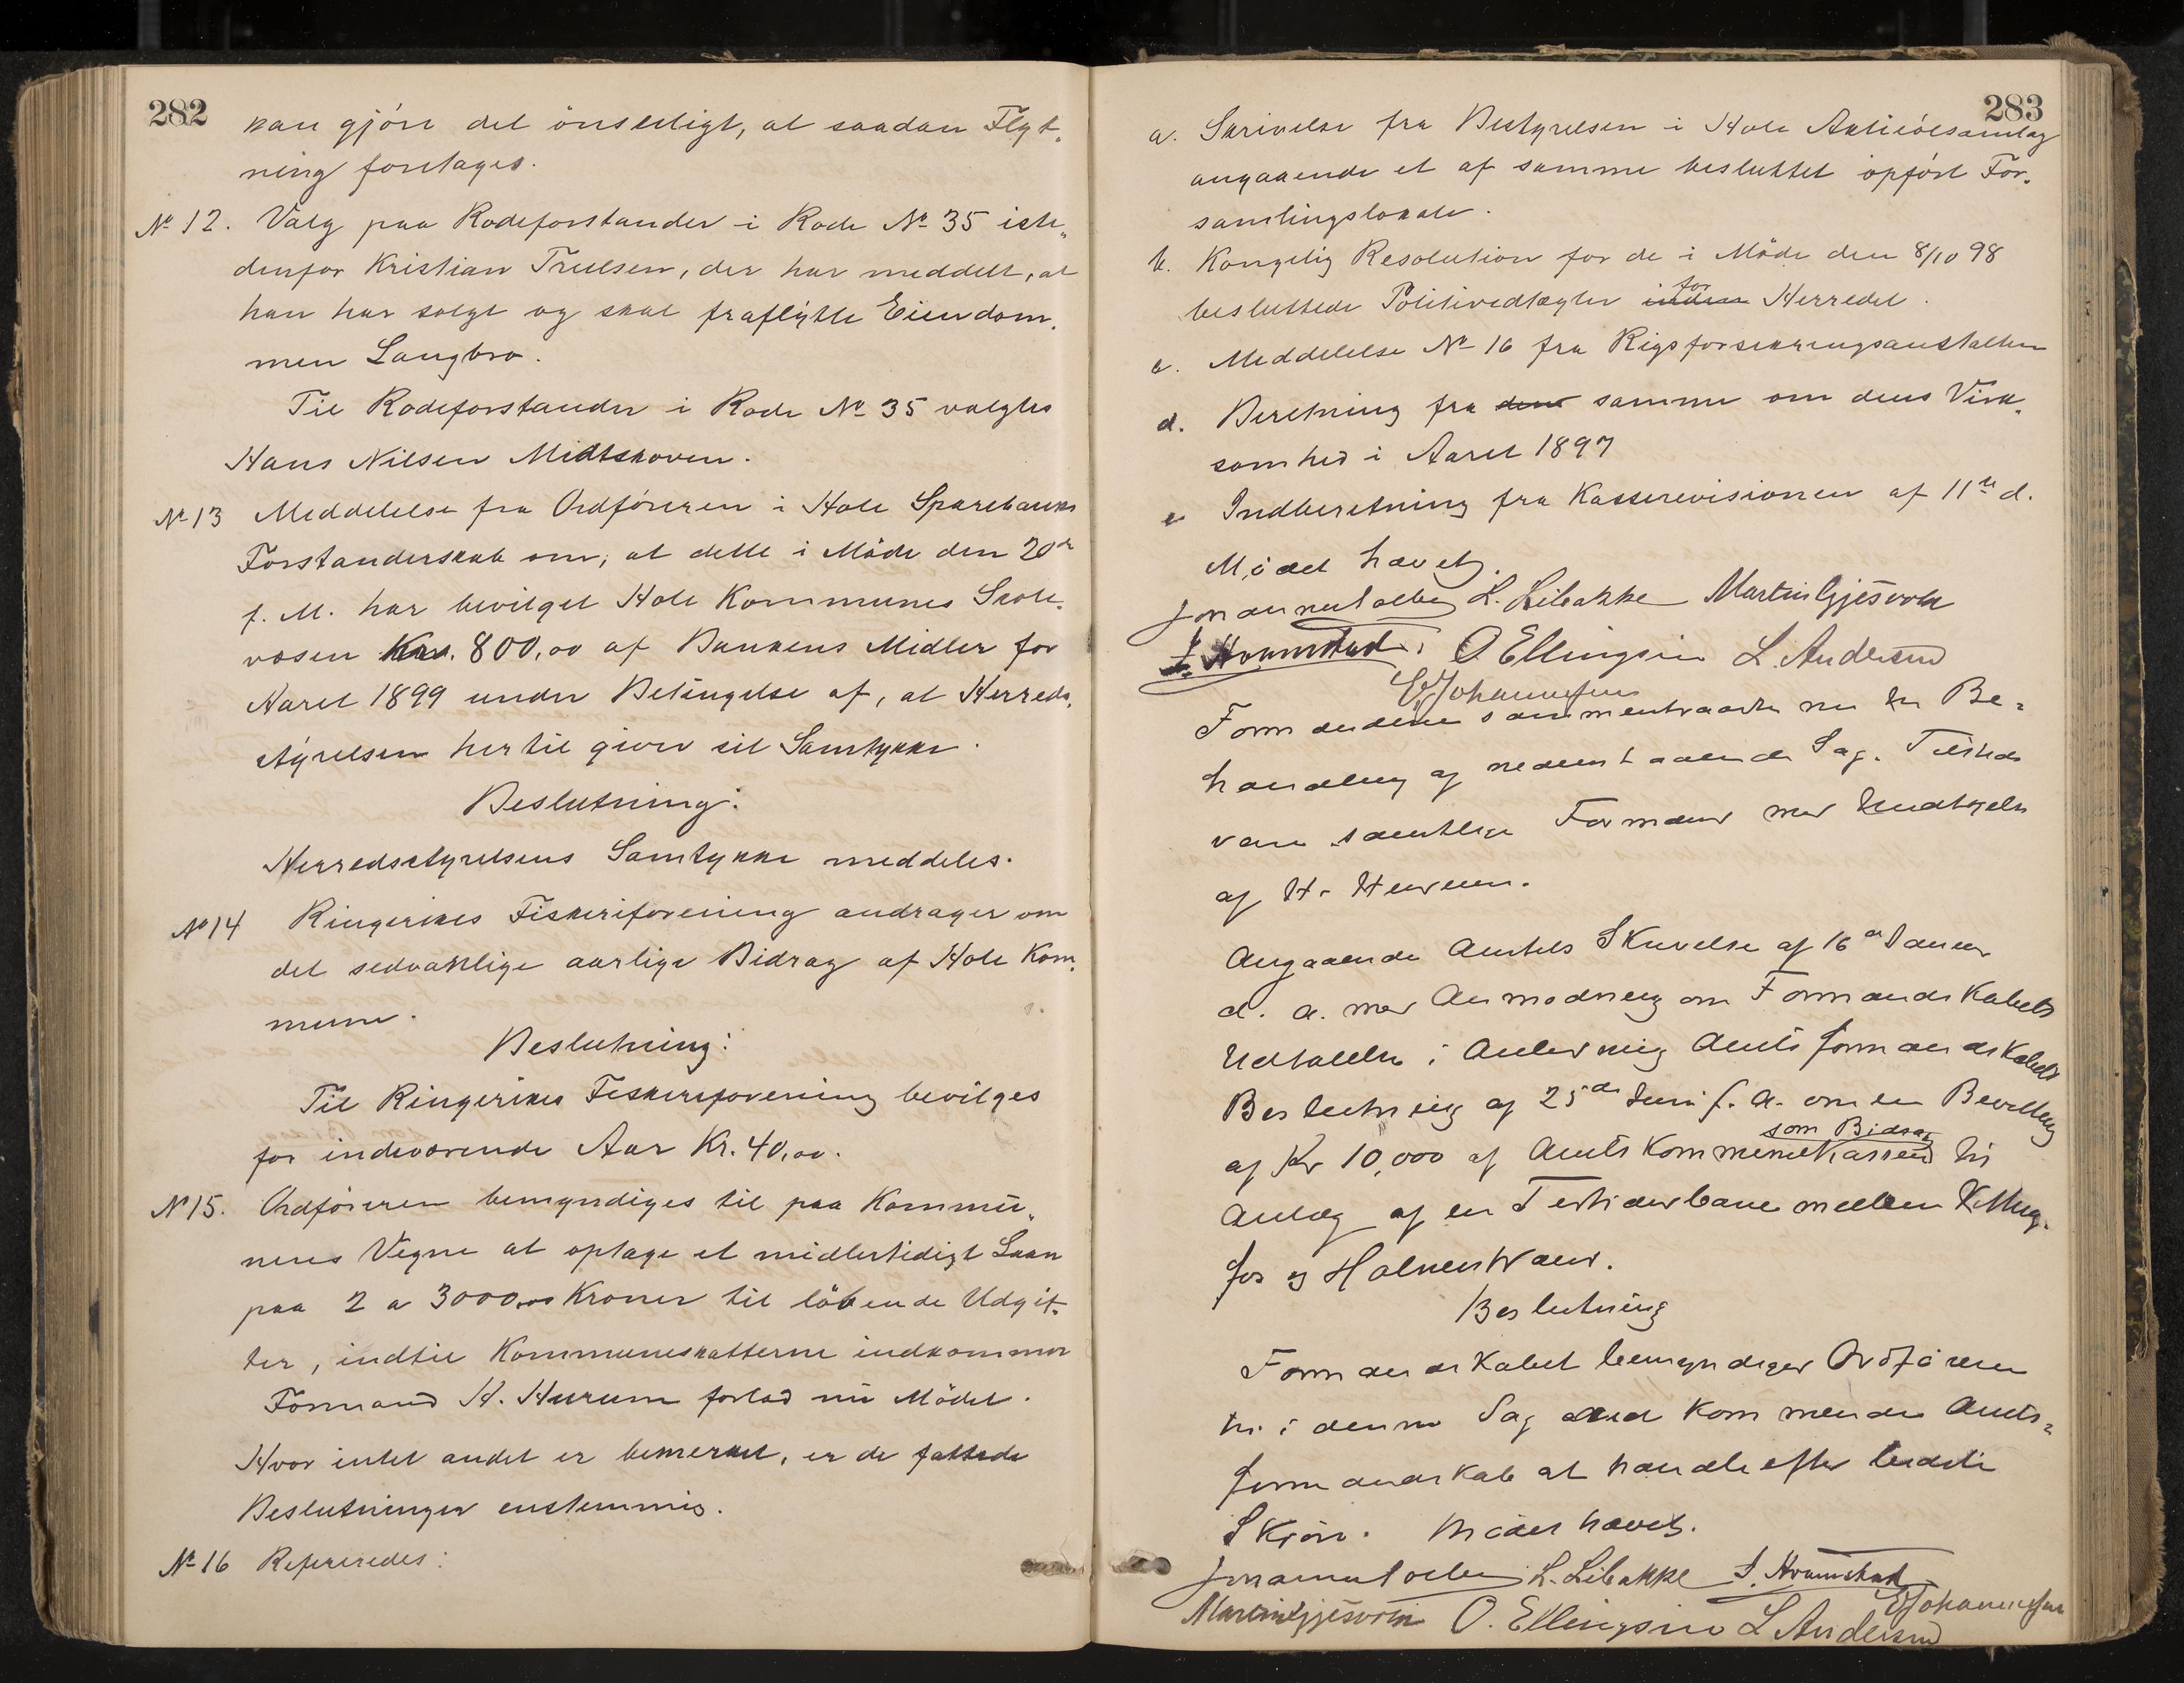 282
kan gjöre det önskeligt, at saadan Flyt„
ning foretages.
№ 12. Valg paa Rodeforstander i Rode № 35 iste„
denfor Kristian Trulsen, der har meddelt, at
han har solgt og skal fraflytte Eiendom„
men Langbro.
Til Rodeforstander i Rode № 35 valgtes
Hans Nilsen Midtskoven.
№ 13 Meddelelse fra Ordföreren i Hole Sparebanks
Forstanderskab om, at dette i Möde den 20de
f. M. har bevilget Hole Kommunes Skole„
væsen Kr. 800,00 af Bankens Midler for
Aaret 1899 under Betingelse af, at Herreds„
styrelsen hertil giver sit Samtykke.
Beslutning:
Herredsstyrelsens Samtykke meddeles.
№ 14 Ringerikes Fiskeriforening andrager om
det sedvanlige aarlige Bidrag af Hole Kom„
mune.
Beslutning:
Til Ringerikes Fiskeriforening bevilges
for indeværende Aar Kr. 40,00.
№ 15. Ordföreren bemyndiges til paa Kommu„
nens Vegne at optage et midlertidigt Laan
paa 2 a 3000,00 Kroner til löbende Udgif„
ter, indtil Kommuneskatterne indkommer
Formand H. Hurum forlod nu Mödet.
Hvor intet andet er bemerket, er de fattede
Beslutninger enstemmig.
№ 16 Refereredes:
283
a. Skrivelse fra Bestyrelsen i Hole Aktieölsamlag
angaaende et af samme besluttet opfört For„
samlingslokale.
b. Kongelig Resolution for de i Möde den 8/10 98
for
besluttede Politivedtægter inden Herredet.
c. Meddelelse № 16 fra Rigsforsikringsanstalten
d. Beretning fra den samme om dens Virk„
somhed i Aaret 1897
e Indberetning fra Kasserevisionen af 11te d.
M, ödet hævet.
L. Libakke Martin Gjesvold
O. Ellingsen L. Andersen
E Johannesen
Formændene sammentraadte nu til Be„
handling af nedenstaaende Sag. Tilstede
vare samtlige Formænd med Undtagelse
af H. Hurum.
Angaaende Amtets Skrivelse af 16de Januar
d. a. med Anmodning om Formandskabets
Udtalelse i Anledning Amtsformandskabets
Beslutning af 25de Juni f. A. om en Bevilling
som Bidrag
af Kr 10,000 af Amtskommunekassen til
Anlæg af en Tertiærbane mellem Vikting„
fos og Holmestrand.
Beslutning
Formandskabet bemyndiger Ordföreren
til i denne Sag ved kommende Amts„
formandskab at handle efter bedste
Skjön. Mödet hævet.
L. Libakke
E Johannesen
Martin Gjesvold O. Ellingsen L Andersen